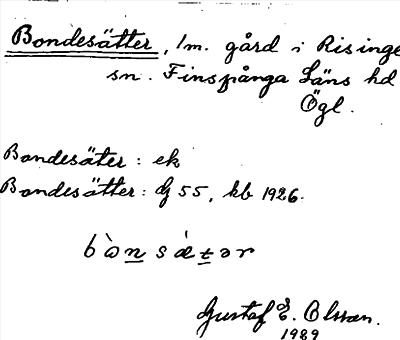 Bondesätter, 1m. gård i Risinge
sn. Finspånga Läns hd
Ögl.
Bondesäter: ek
Bondesätter: G 55, kb 1926.
bo̊̀n̲sät̲ər
Gustaf E. Olsson.
1989